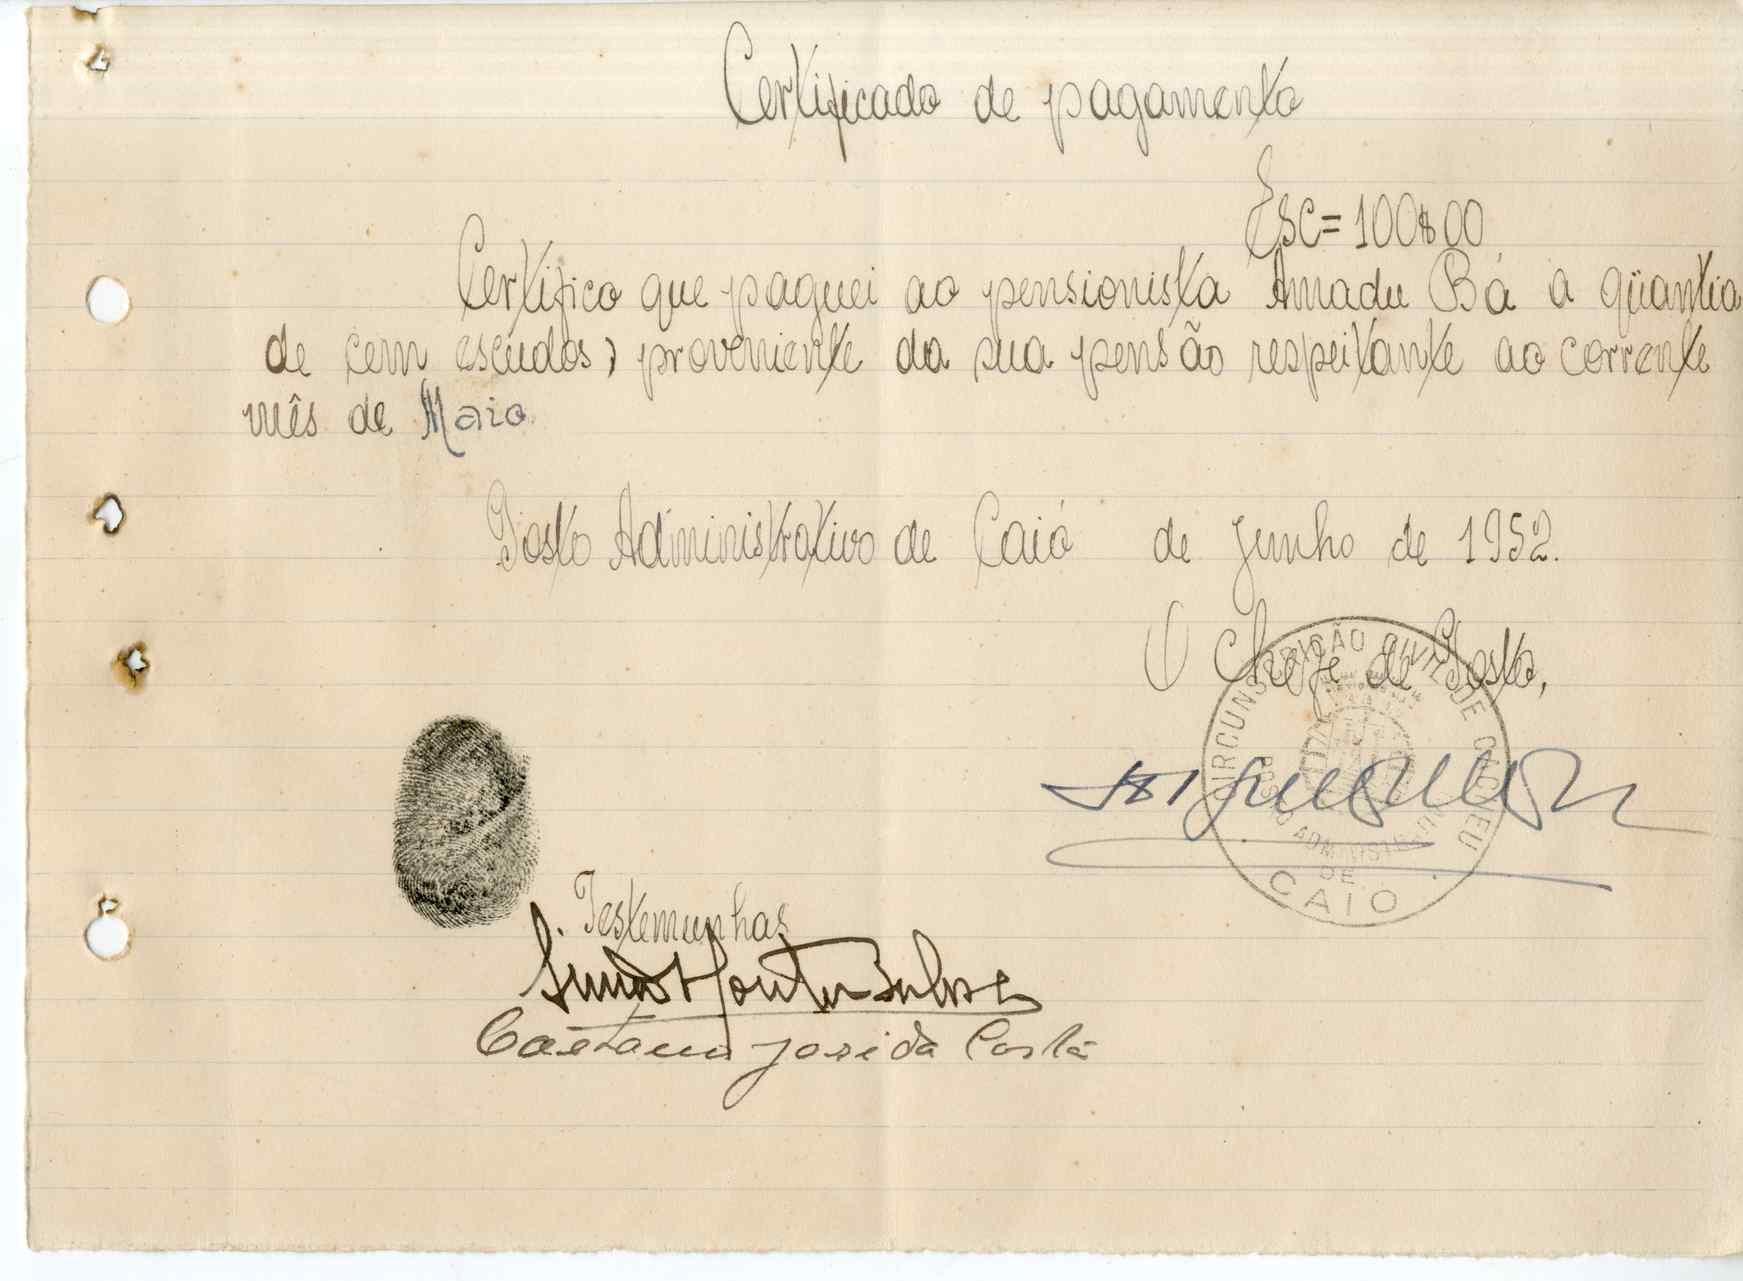 Certificado de pagamento
Esc=100$00
Certifico que paguei ao pensionista Amadu Bá a qüantia
de cem escudos, proveniente da sua pensão respeitante ao corrente
mês de Maio
Posto Administrativo de Caió de junho de 1952.
O Chefe de Posto,
CIRCUNSCRIÇÃO CIVIL DE CACHEU
POSTO ADMINISTRATIVO
DE
CAIO
Testemunhas
Caetano José da Costa